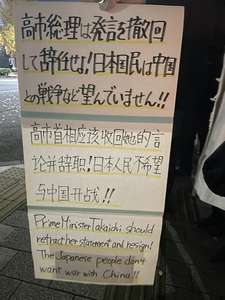 高市総理は発言を撤回
して辞任せよ!日本国民は中国
との戦争など望んでいません!!
高市首相应该收回她的言
论并辞职!日本人民不希望
与中国开战!!
Prime Minister Takaichi should
retract her statement and resign!
The Japanese people don't
want war with China!!